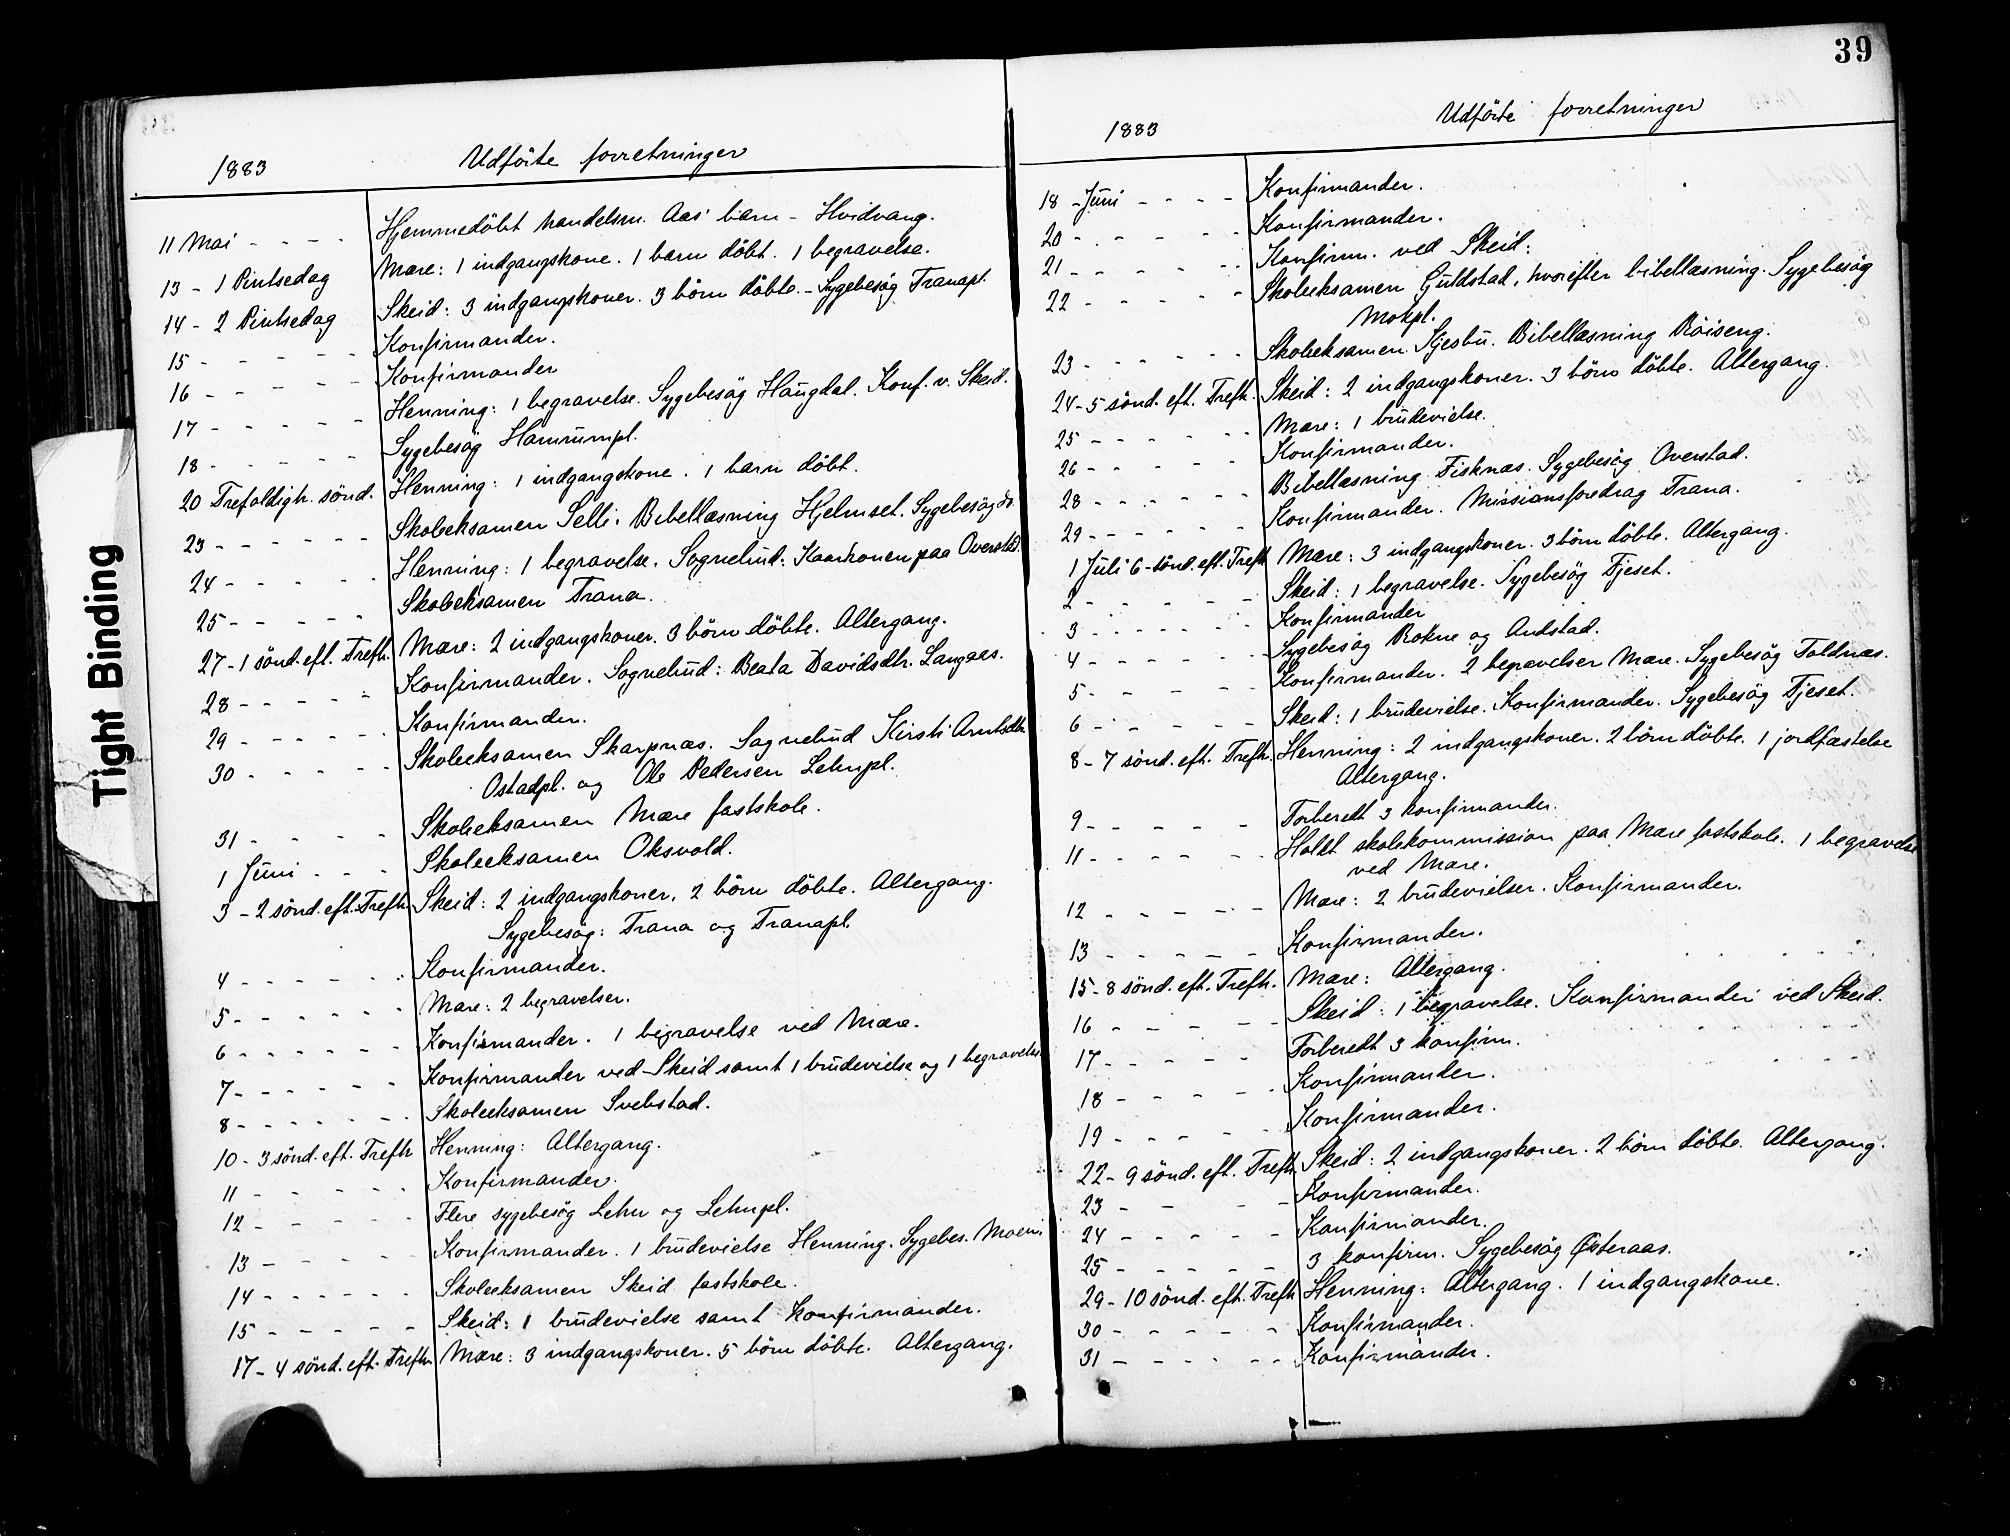 39
1883 Udförte forretninger
11 Mai - - - - Hjemmedöbt handelsm. Aas' barn - Hvidvang.
13 - 1 Pintsedag Mære: 1 indgangskone. 1 barn döbt. 1 begravelse.
14 - 2 Pintsedag Skeid: 3 indgangskoner. 3 börn döbte. - Sygebesög Tranapl.
15 - - - - - Konfirmander.
16 - - - - - Konfirmander
17 - - - - - Henning: 1 begravelse. Sygebesög Haugdal. Konf. v. Skeid.
18 - - - - - Sygebesög Hamrumpl.
20 Trefoldigh. sönd. Henning: 1 indgangskone. 1 barn döbt.
23 - - - - - - Skoleeksamen Selli. Bibellæsning Hjelmset. Sygebesög do.
24 - - - - - Henning: 1 begravelse. Sognebud: Kaarkonen paa Overstad.
25 - - - - - Skoleeksamen Trana.
27 - 1 sönd. eft. Trefh. Mære: 2 indgangskoner. 3 börn döbte. Altergang.
28 - - - - - Konfirmander. Sognebud: Beata Davidsdtr. Langaas.
29 - - - - - Konfirmander.
30 - - - - - Skoleeksamen Skarpnæs. Sognebud Kirsti Arntsdtr.
Ostadpl. og Ole Pedersen Lehnpl.
31 - - - - - Skoleeksamen Mære fastskole.
1 Juni - - - Skoleeksamen Oksvold.
3 - 2 sönd. eft. Trefh. Skeid: 2 indgangskoner. 2 börn döbte. Altergang.
Sygebesög: Trana og Tranapl.
4 - - - - - Konfirmander.
5 - - - - - - Mære: 2 begravelser.
6 - - - - - - Konfirmander. 1 begravelse ved Mære.
7 - - - - - Konfirmander ved Skeid samt 1 brudevielse og 1 begravelse.
8 - - - - - - Skoleeksamen Svebstad.
10 - 3 sönd. eft. Trefh Henning: Altergang.
11 - - - - - Konfirmander.
12 - - - - - Flere sygebesög Lehn og Lehnpl.
13 - - - - Konfirmander. 1 brudevielse Henning. Sygebes. Moem.
14 - - - - - - Skoleeksamen Skeid fastskole.
15 - - - - - Skeid: 1 brudevielse samt konfirmander.
17 - 4 sönd. eft. Trefh. Mære: 3 indgangskoner. 5 börn döbte. Altergang.
1883 Udförte forretninger
18 - Juni - - - - Konfirmander.
20 - - - - - - Konfirmander.
21 - - - - - - Konfirm. ved Skeid.
22 - - - - - - Skoleeksamen Guldstad, hvorefter bibellæsning. Sygebesög
Mokpl.
23 - - - - - - Skoleeksamen Kjesbu. Bibellæsning Röiseng.
24 - 5 sönd. eft. Trefh. Skeid: 2 indgangskoner. 3 börn döbte. Altergang.
25 - - - - - - Mære: 1 brudevielse.
26 - - - - - - Konfirmander.
28 - - - - - - Bibellæsning Fisknæs. Sygebesög Overstad.
29 - - - - - Konfirmander. Missionsforedrag Trana.
1 Juli 6 - sönd. eft. Trefh Mære: 3 indgangskoner. 3 börn döbte. Altergang.
2 - - - - - Skeid: 1 begravelse. Sygebesög Tjeset.
3 - - - - - - Konfirmander
4 - - - - - - Sygebesög Rokne og Andstad.
5 - - - - - Konfirmander. 2 begravelser Mære. Sygebesög Toldnæs.
6 - - - - - Skeid: 1 brudevielse. Konfirmander. Sygebesög Tjeset.
8 - 7 sönd. eft. Trefh. Henning: 2 indgangskoner. 2 börn döbte. 1 jordfæstelse
Altergang.
9 - - - - - Forberedt 3 konfirmander.
11 - - - - - - Holdt skolekommission paa Mære fastskole. 1 begravelse
ved Mære.
12 - - - - - Mære: 2 brudevielser. Konfirmander.
13 - - - - - Konfirmander.
15 - 8 sönd. eft. Trefh. Mære: Altergang.
16 - - - - - Skeid: 1 begravelse. Konfirmander ved Skeid.
17 - - - - Forberedt 3 konfirm.
18 - - - - - Konfirmander.
19 - - - - - Konfirmander.
22 - 9 sönd. eft. Trefh. Skeid: 2 indgangskoner. 2 börn döbte. Altergang.
23 - - - - Konfirmander.
24 - - - - - Konfirmander.
25 - - - - - 3 konfirm. Sygebesög Østeraas.
29 - 10 sönd. eft. Trefh Henning: Altergang. 1 indgangskone.
30 - - - - - Konfirmander.
31 - - - - - - Konfirmander.
Tight Binding